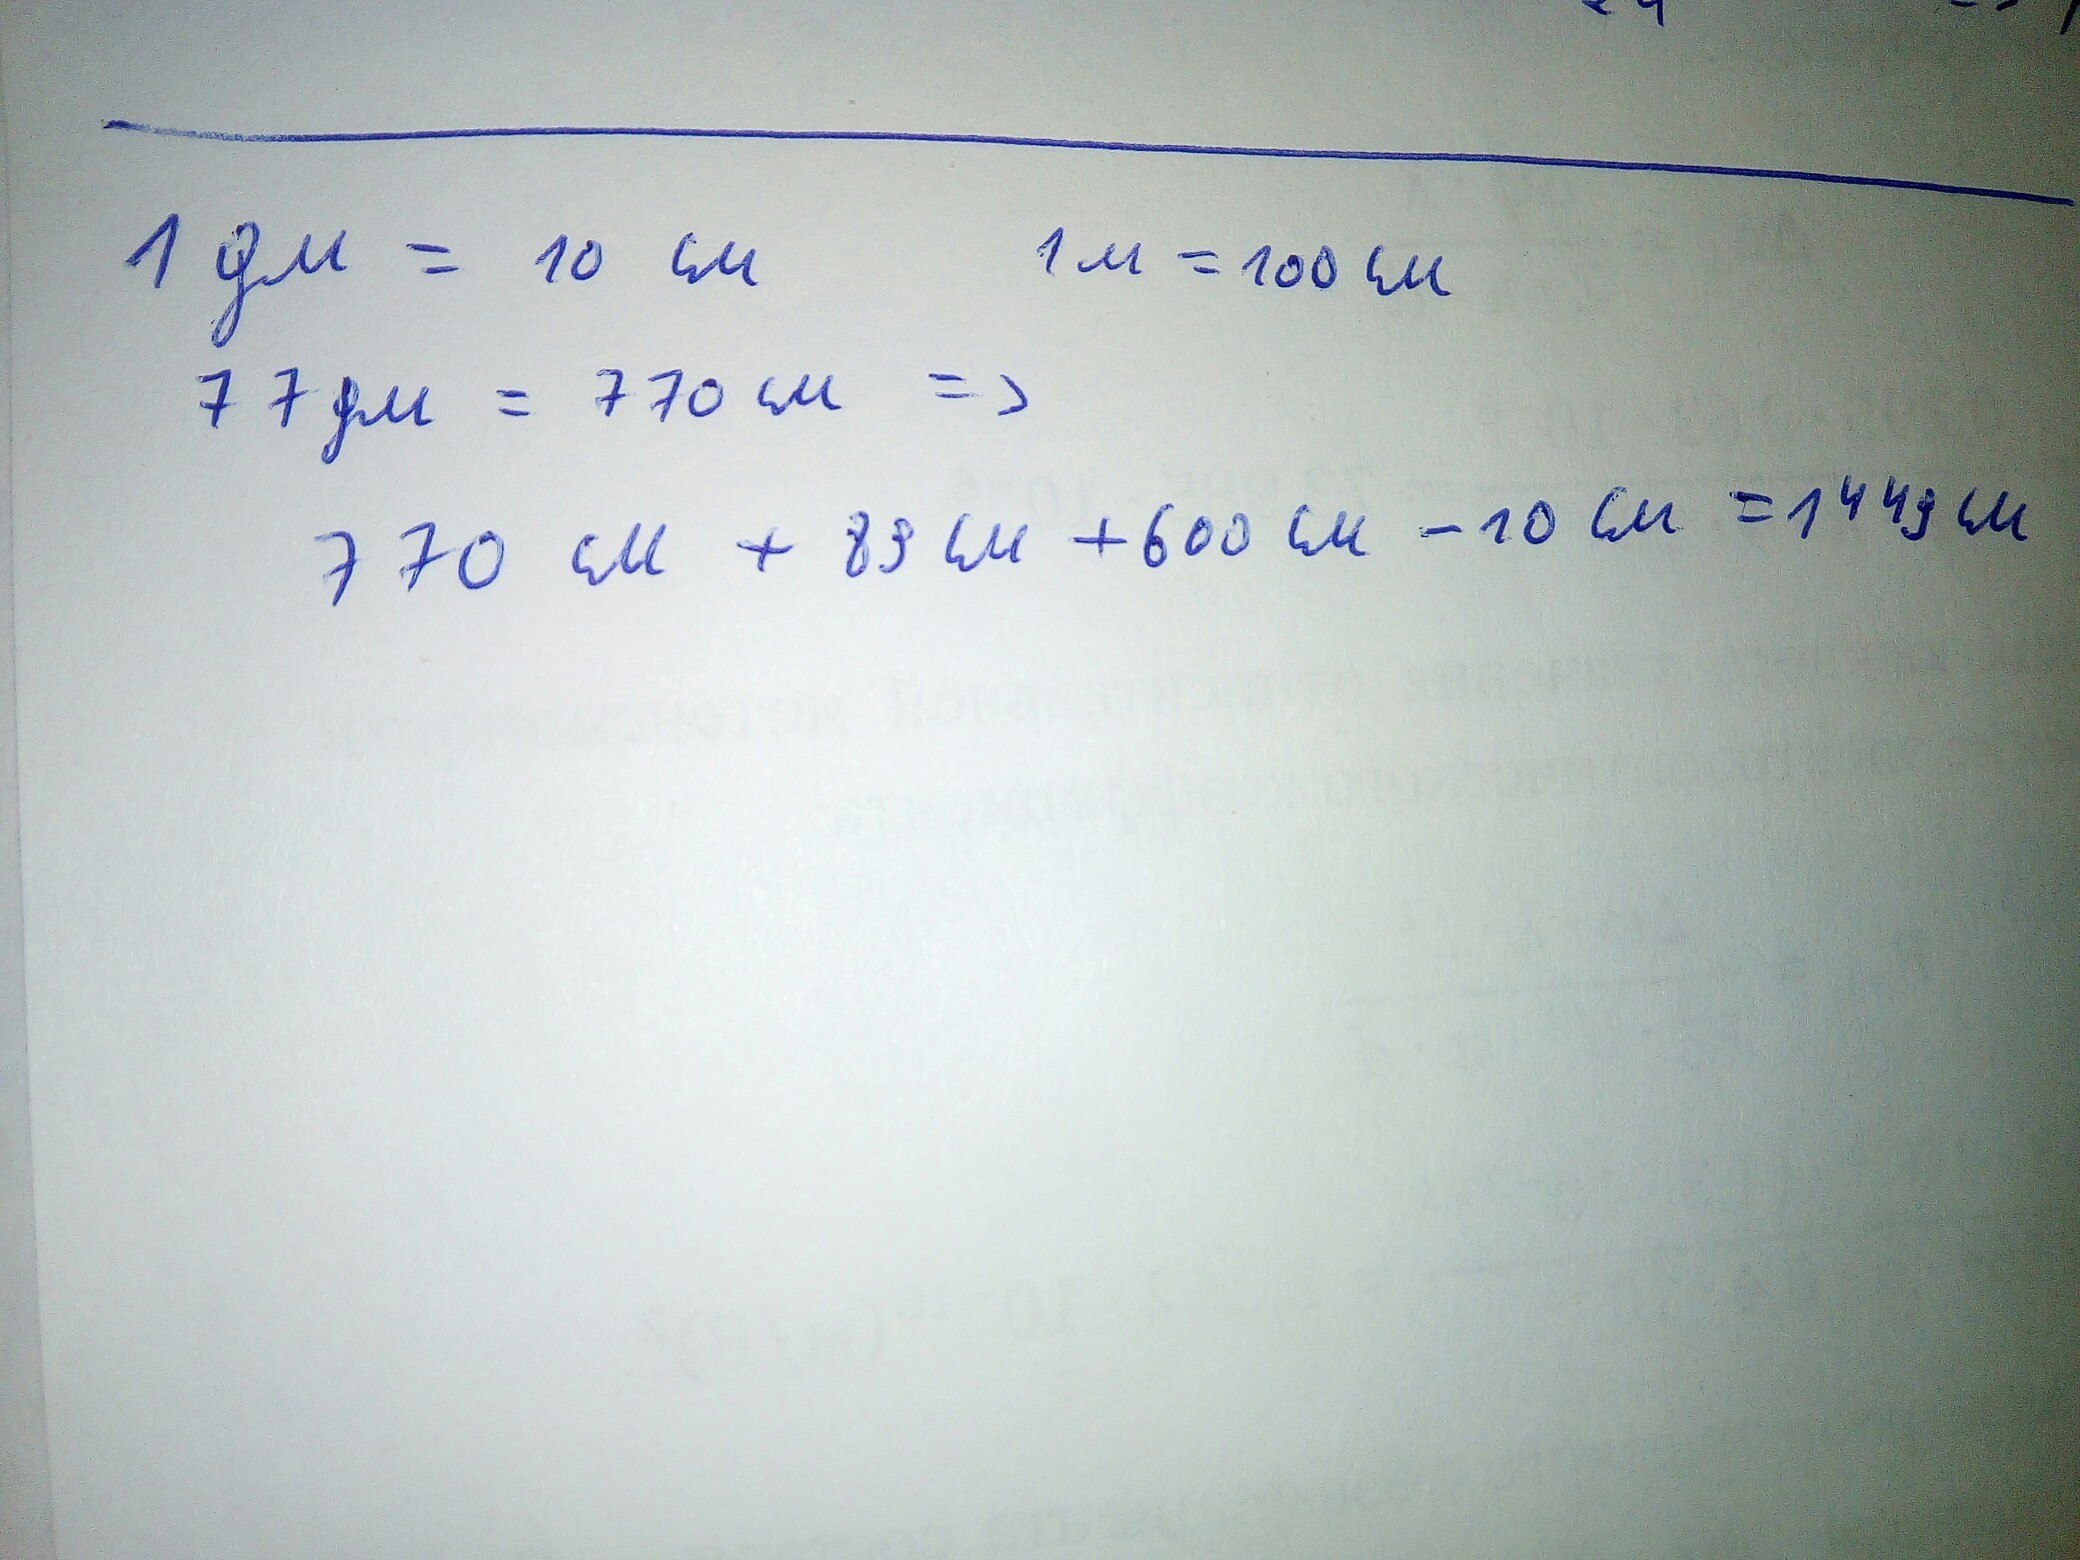 1 дм = 10 см 1 м = 100 см
77 дм = 770 см =>
770 см + 89 см + 600 см - 10 см = 1449 см